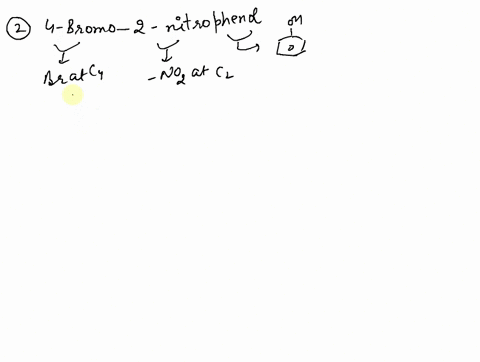 ② 4-Bromo-2-nitrophenol OH
Br at C4 -NO2 at C2